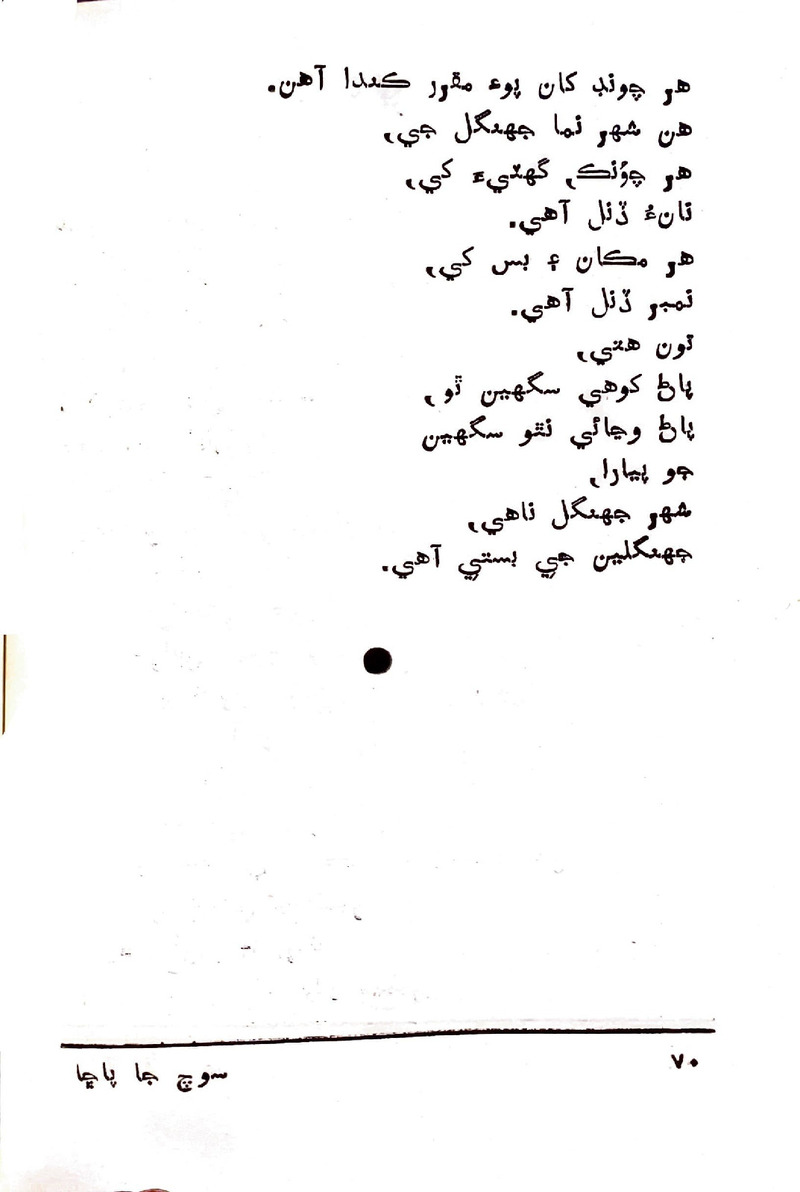 هر چونڊ کان پوءِ مقرر ڪندا آهن.
هن شهر نما جهنگل جي،
هر چؤنڪ، گهٽيءَ کي،
نانءُ ڏنل آهي.
هر مڪان ۽ بس کي،
نمبر ڏنل آهي.
تون هتي،
پاڻ کوهي سگهين ٿو،
پاڻ وڃائي نٿو سگهين
جو پيارا،
شهر جهنگل ناهي،
جهنگلين جي بستي آهي.
۷۰
سوچ جا پاڇا